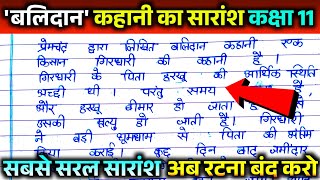 'बलिदान' कहानी का सारांश कक्षा 11
प्रेमचंद द्वारा लिखित बलिदान कहानी एक
किसान गिरधारी की कहानी है।
गिरधारी के पिता हरखू की आर्थिक स्थिति
अच्छी थी। परंतु समय है,
और हरखू बीमार हो जाता
उसकी मृत्यु हो जाती है। गिरधारी
ने बड़ी धूमधाम से पिता की अंतिम
कराई। कुछ दिन बाद जमींदार
सबसे सरल सारांश अब रटना बंद करो